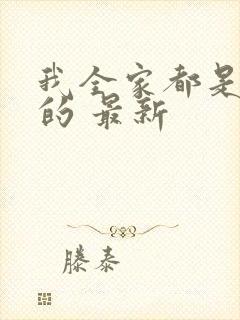 我全家都是
的 最新
滕泰